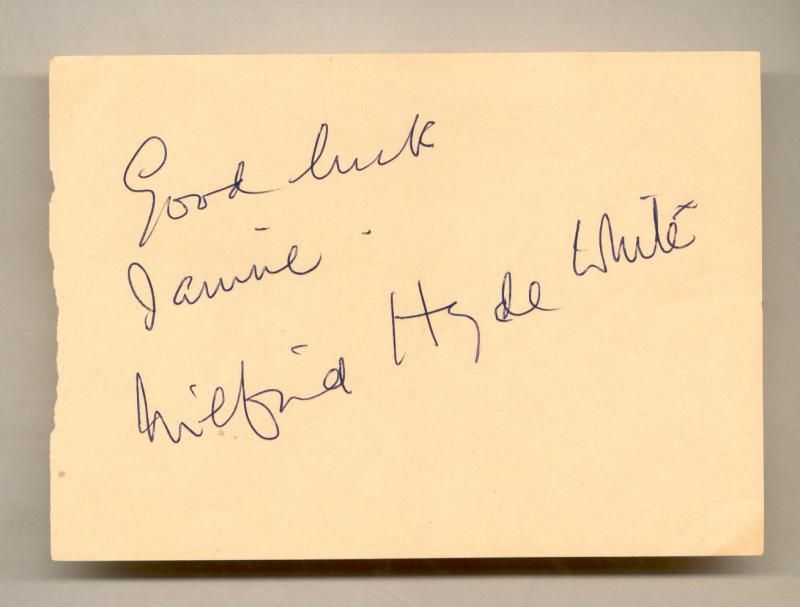 Good luck
Janine.
Wilfrid Hyde White